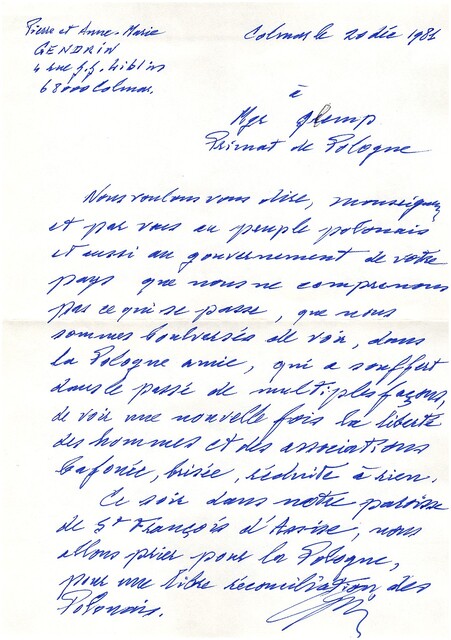 Pierre et Anne-Marie
GENDRIN
4 rue J.J. Waltz
68000 Colmar.
Colmar le 20 déc 1981
à
Mgr Glemp
Primat de Pologne
Nous voulons vous dire, monseigneur,
et par vous au peuple polonais
et aussi au gouvernement de votre
pays que nous ne comprenons
pas ce qui se passe, que nous
sommes bouleversés de voir, dans
la Pologne amie, qui a souffert
dans le passé de multiples façons,
de voir une nouvelle fois la liberté
des hommes et des associations
bafouée, brisée, réduite à rien.
Ce soir dans notre paroisse
de St François d'Assise, nous
allons prier pour la Pologne,
pour une libre réconciliation des
Polonais.